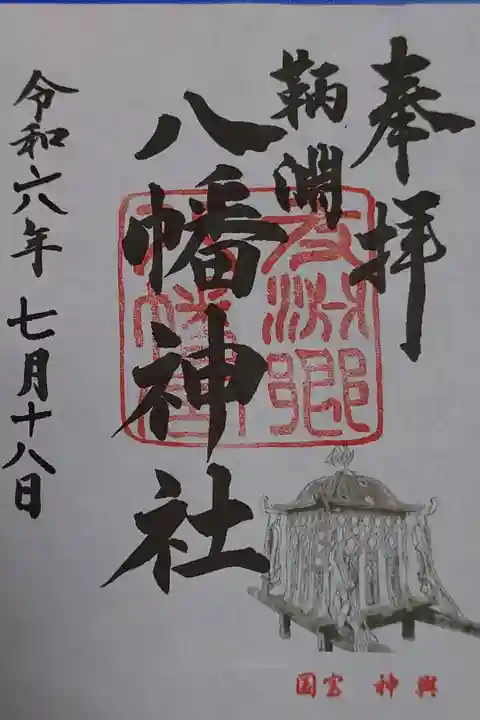 奉拝
鞆淵
八幡神社
令和六年七月十八日
国宝 神輿